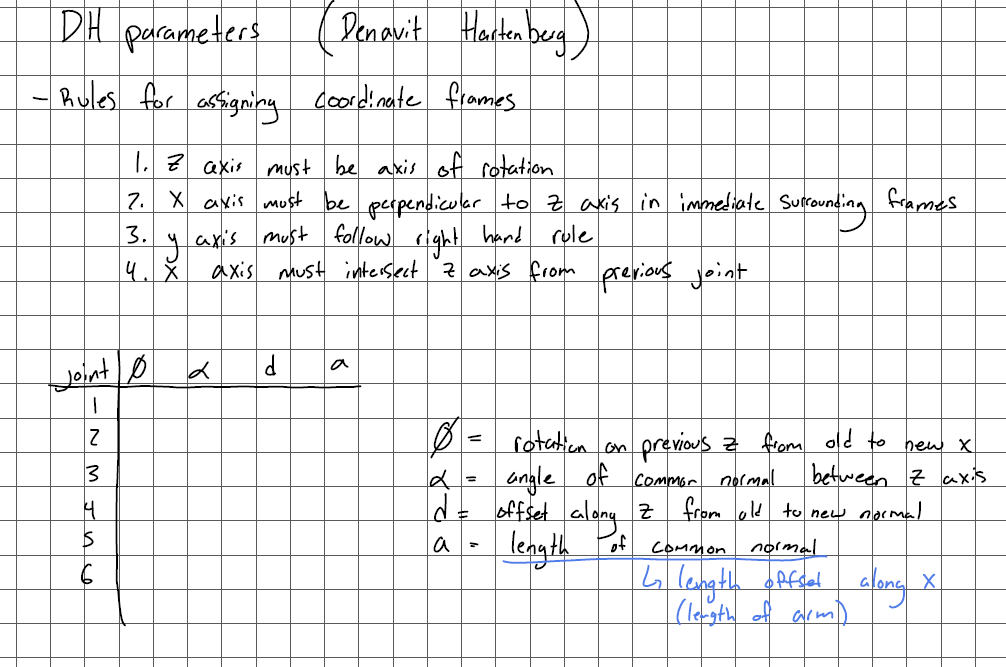 DH parameters (Denavit Hartenberg)
- Rules for assigning coordinate frames
1. Z axis must be axis of rotation
2. X axis must be perpendicular to Z axis in immediate surrounding frames
3. y axis must follow right hand rule
4. X axis must intersect Z axis from previous joint
joint Ø α d a
1
2
3
4
5
6
Ø = rotation on previous z from old to new x
α = angle of common normal between z axis
d = offset along z from old to new normal
a = length of common normal
↳ length offset along x
(length of arm)